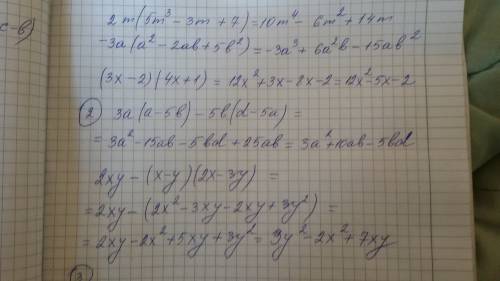 c-в)
2m(5m³-3m+7)=10m⁴-6m²+14m
-3a(a²-2ab+5b²)=-3a³+6a²b-15ab²
(3x-2)(4x+1)=12x²+3x-8x-2=12x²-5x-2
② 3a(a-5b)-5b(d-5a)=
=3a²-15ab-5bd+25ab=3a²+10ab-5bd
2xy-(x-y)(2x-3y)=
=2xy-(2x²-3xy-2xy+3y²)=
=2xy-2x²+5xy+3y²=3y²-2x²+7xy